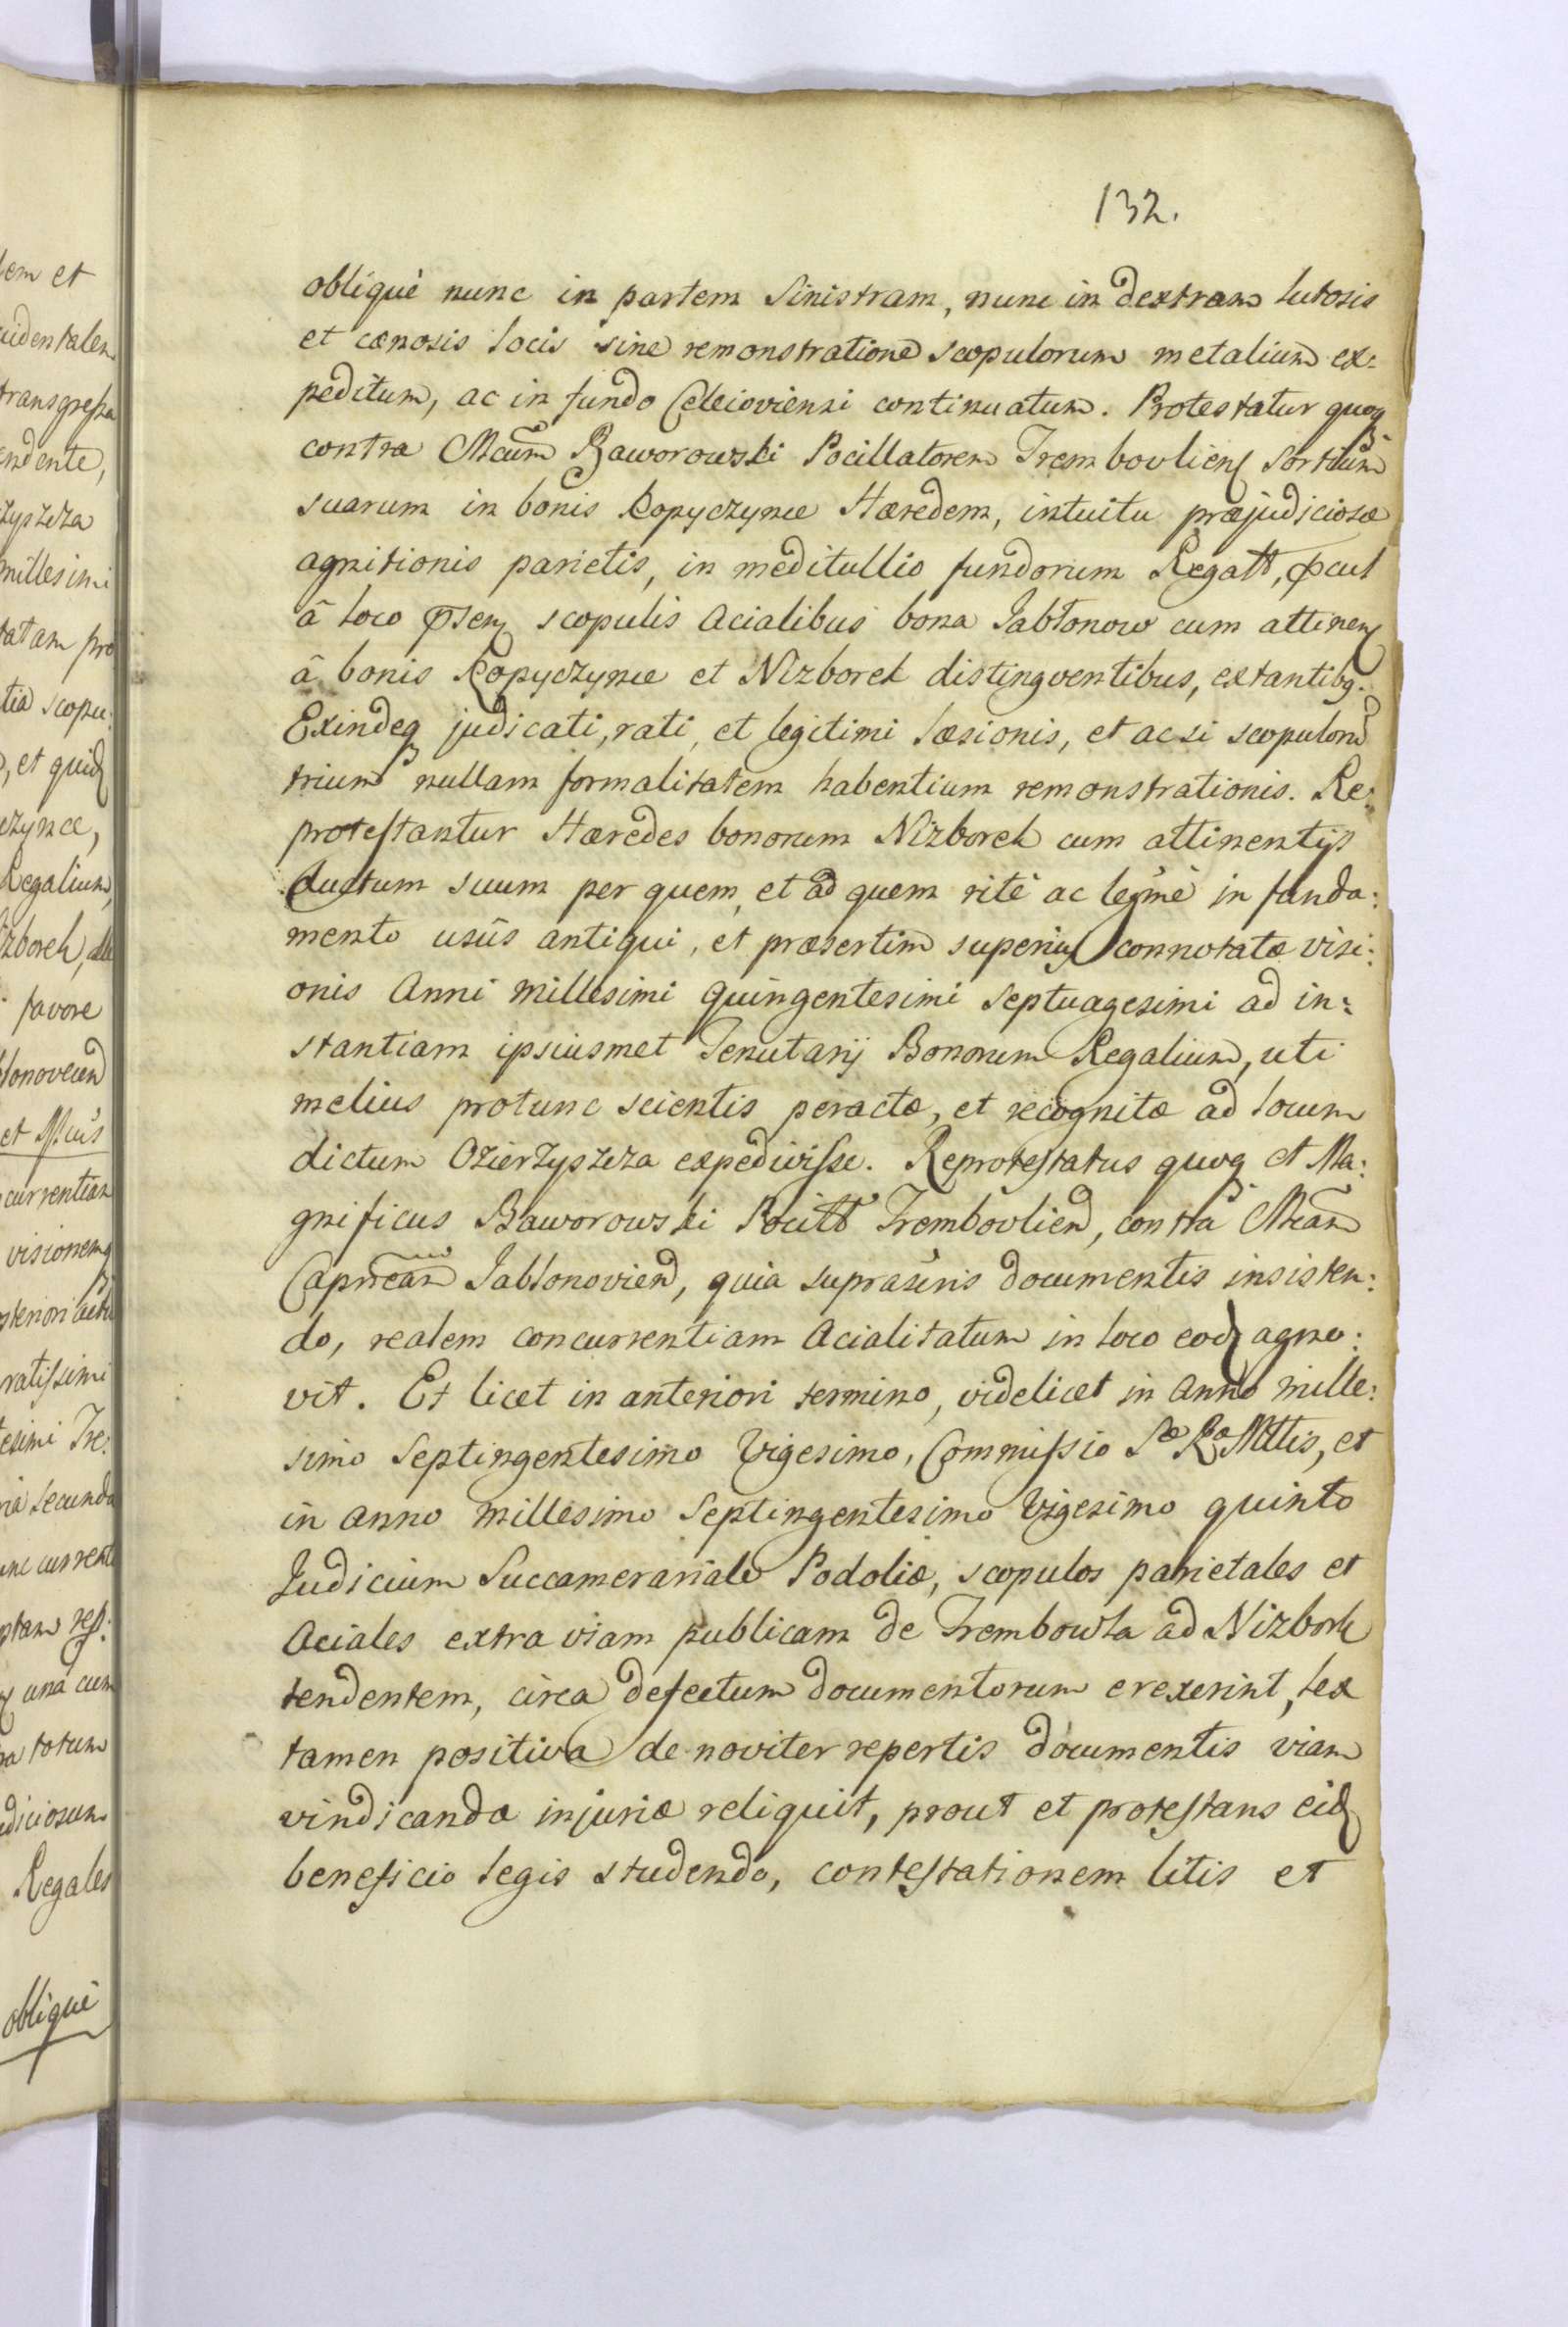 132.
obliquè nunc in partem Sinistram, nunc in dextram lutosis
et cœnosis locis sine remonstratione scopulorum metalium ex=
peditum, ac in fundo Celeioviensi continuatum. Protestatur quoq
contra Mcum Baworowski Pocillatorem Trembovlien Sortium
suarum in bonis Kopyczynce Hæredem, intuitu præjudiciosæ
agnitionis parietis, in meditullio fundorum Regall, pcul
â loco psen scopulis Acialibus bona Jabłonow cum attinen
â bonis Kopyczynce et Nizborek distingventibus, extantibq.
Exindeq judicati, rati, et legitimi læsionis, et ac si scopulord
trium nullam formalitatem habentium remonstrationis. Re:
protestantur Hæredes bonorum Nizborek cum attinentijs
ductum suum per quem, et ad quem ritè ac legmè in funda:
mento usûs antiqui, et præsertim superius connotatæ visi:
onis Anni Millesimi Quingentesimi Septuagesimi ad in:
stantiam ipsiusmet Tenutarij Bonorum Regalium, uti
melius protunc scientis peractæ, et recognitæ ad locum
dictum Ozierzyszcza expedivisse. Reprotestatus quoq et Ma:
gnificus Baworowski Pocill Trembovlien, contra Mcam
Capneam Jablonovien, quia suprasens documentis insisten:
do, realem concurrentiam Acialitatum in loco eod agno:
vit. Et licet in anteriori termino, videlicet in Anno mille:
simo Septingentesimo Vigesimo, Commissio Sæ Ræ Mttis, et
in anno Millesimo Septingentesimo Vigesimo quinto
Judicium Succamerariale Podoliæ, scopulos parietales et
Aciales extra viam publicam de Trembowla ad Nizbork
tendentem, circa defectum documentorum erexerint, lex
tamen positiva de noviter repertis documentis viam
vindicanda injuriæ reliquit, prout et protestans eid
beneficio legis studendo, contestationem litis et
lem et
uidentalem
transgressa
endente,
zyszcza
millesimi
tatam pro
tia scopu:
, et quid
czynce,
Regalium,
izborek,
favore
currentian
visionemq
ratissimi
esimi Tre:
ria secunda
una cum
ra totum
udiciosum
Regales
obliquè